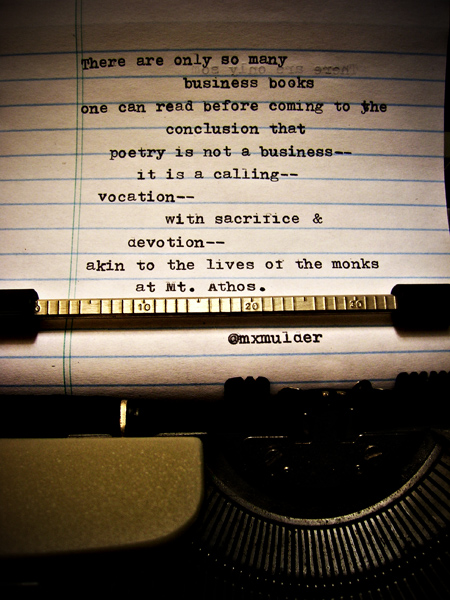 There are only so many
There are only so
business books
one can read before coming to the
conclusion that
poetry is not a business--
it is a calling--
vocation--
with sacrifice &
devotion--
akin to the lives of the monks
at Mt. Athos.
10 20 30
@mxmulder